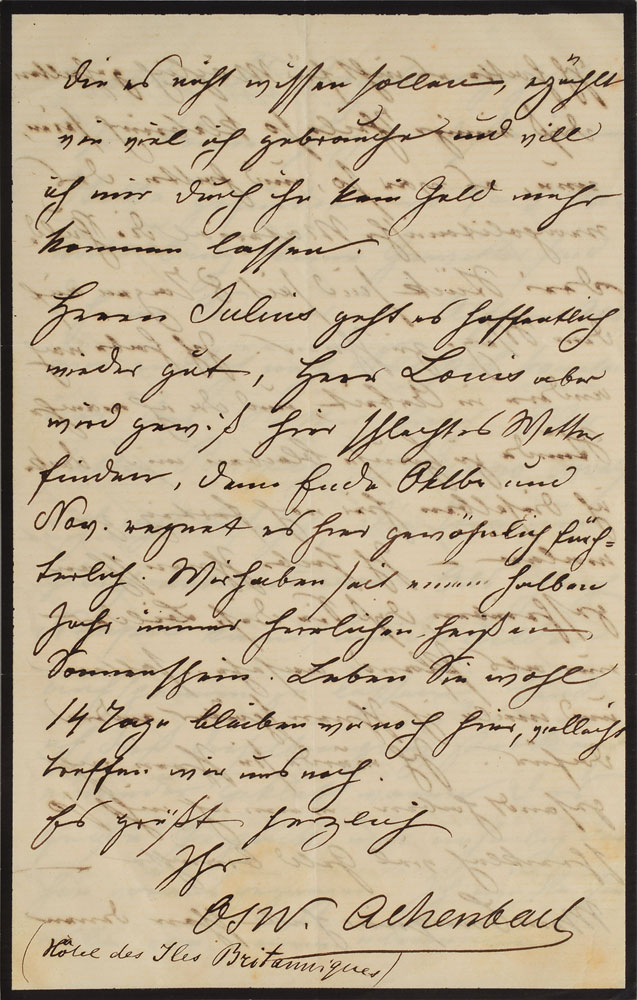 die es nicht wissen sollen, erzählt
wie viel ich gebrauche und will
ich mir durch ihn kein Geld mehr
kommen lassen.
Herrn Julius geht es hoffentlich
wieder gut, Herr Louis aber
wird gewiß hier schlechtes Wetter
finden, denn Ende Oktbr und
Nov. regnet es hier gewöhnlich fürch=
terlich. Wir haben seit einem halben
Jahr immer herrlichen heißen
Sonnenschein. Leben Sie wohl
14 Tage bleiben wir noch hier, vielleicht
treffen wir uns noch.
Es grüßt herzlich
Ihr
Osw. Achenbach
(Hôtel des Iles Britanniques)